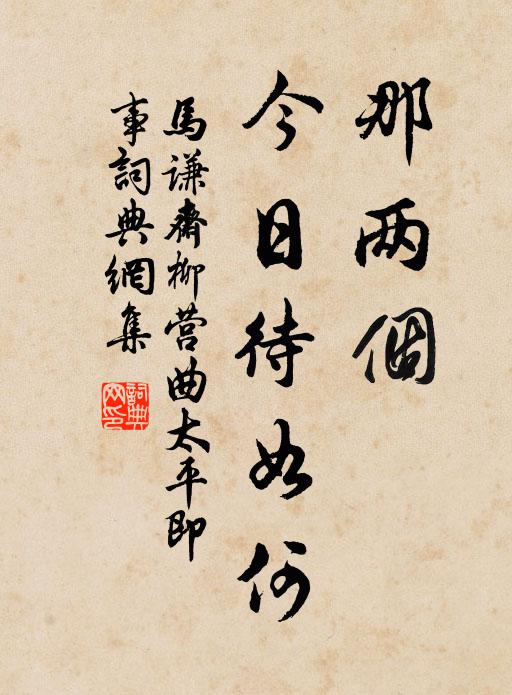 那两個
今日待如何
馬谦齋柳营曲太平即
事詞典網集
詞典
网印